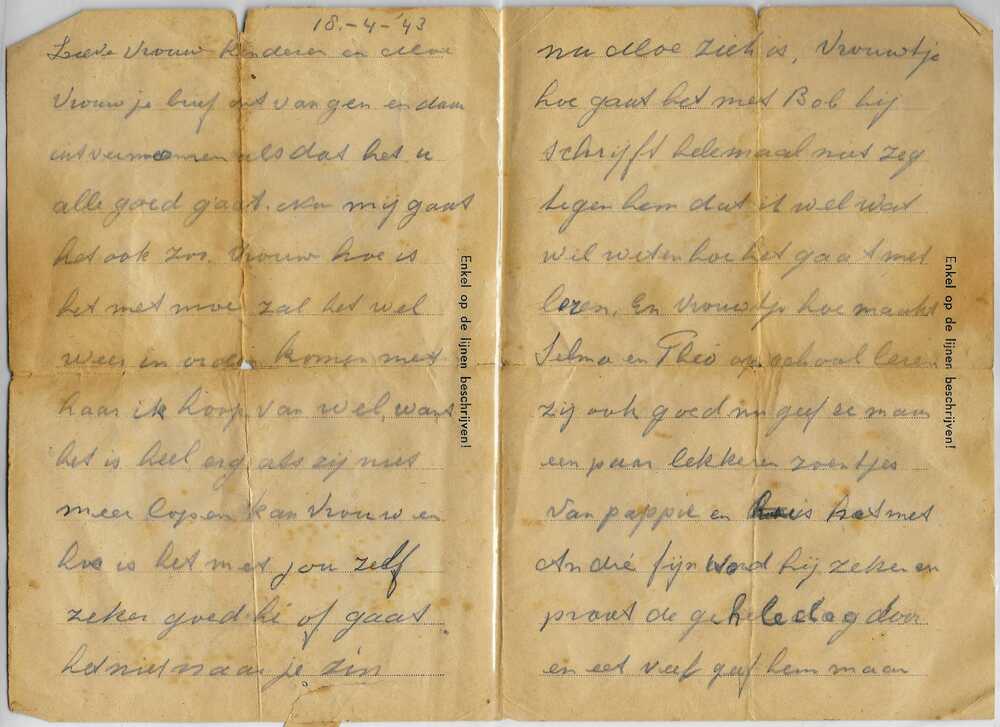 18.-4-'43
Lieve Vrouw kinderen en Moe
Vrouw je brief ontvangen en daar
uit vernomen als dat het u
alle goed gaat. Mn mij gaat
het ook zoo. Vrouw hoe is
het met moe zal het wel
weer in orden komen met
haar ik hoop van wel, want
het is heel erg als zij niet
meer lopen kan Vrouw en
hoe is het met jou zelf
zeker goed hé of gaat
het niet naar je zin
Enkel op de lijnen beschrijven!
nu Moe ziek is, Vrouwtje
hoe gaat het met Bob hij
schrijft helemaal niet zeg
tegen hem dat ik wel wat
wil weten hoe het gaat met
leren, En Vrouwtje hoe maakt
Selma en Théo op school leren
zij ook goed nu geef ze maar
een paar lekkeren zoentjes
van pappie en is het met
André fijn word hij zeker en
praat de gehele dag door
en eet veel geef hem maar
Enkel op de lijnen beschrijven!